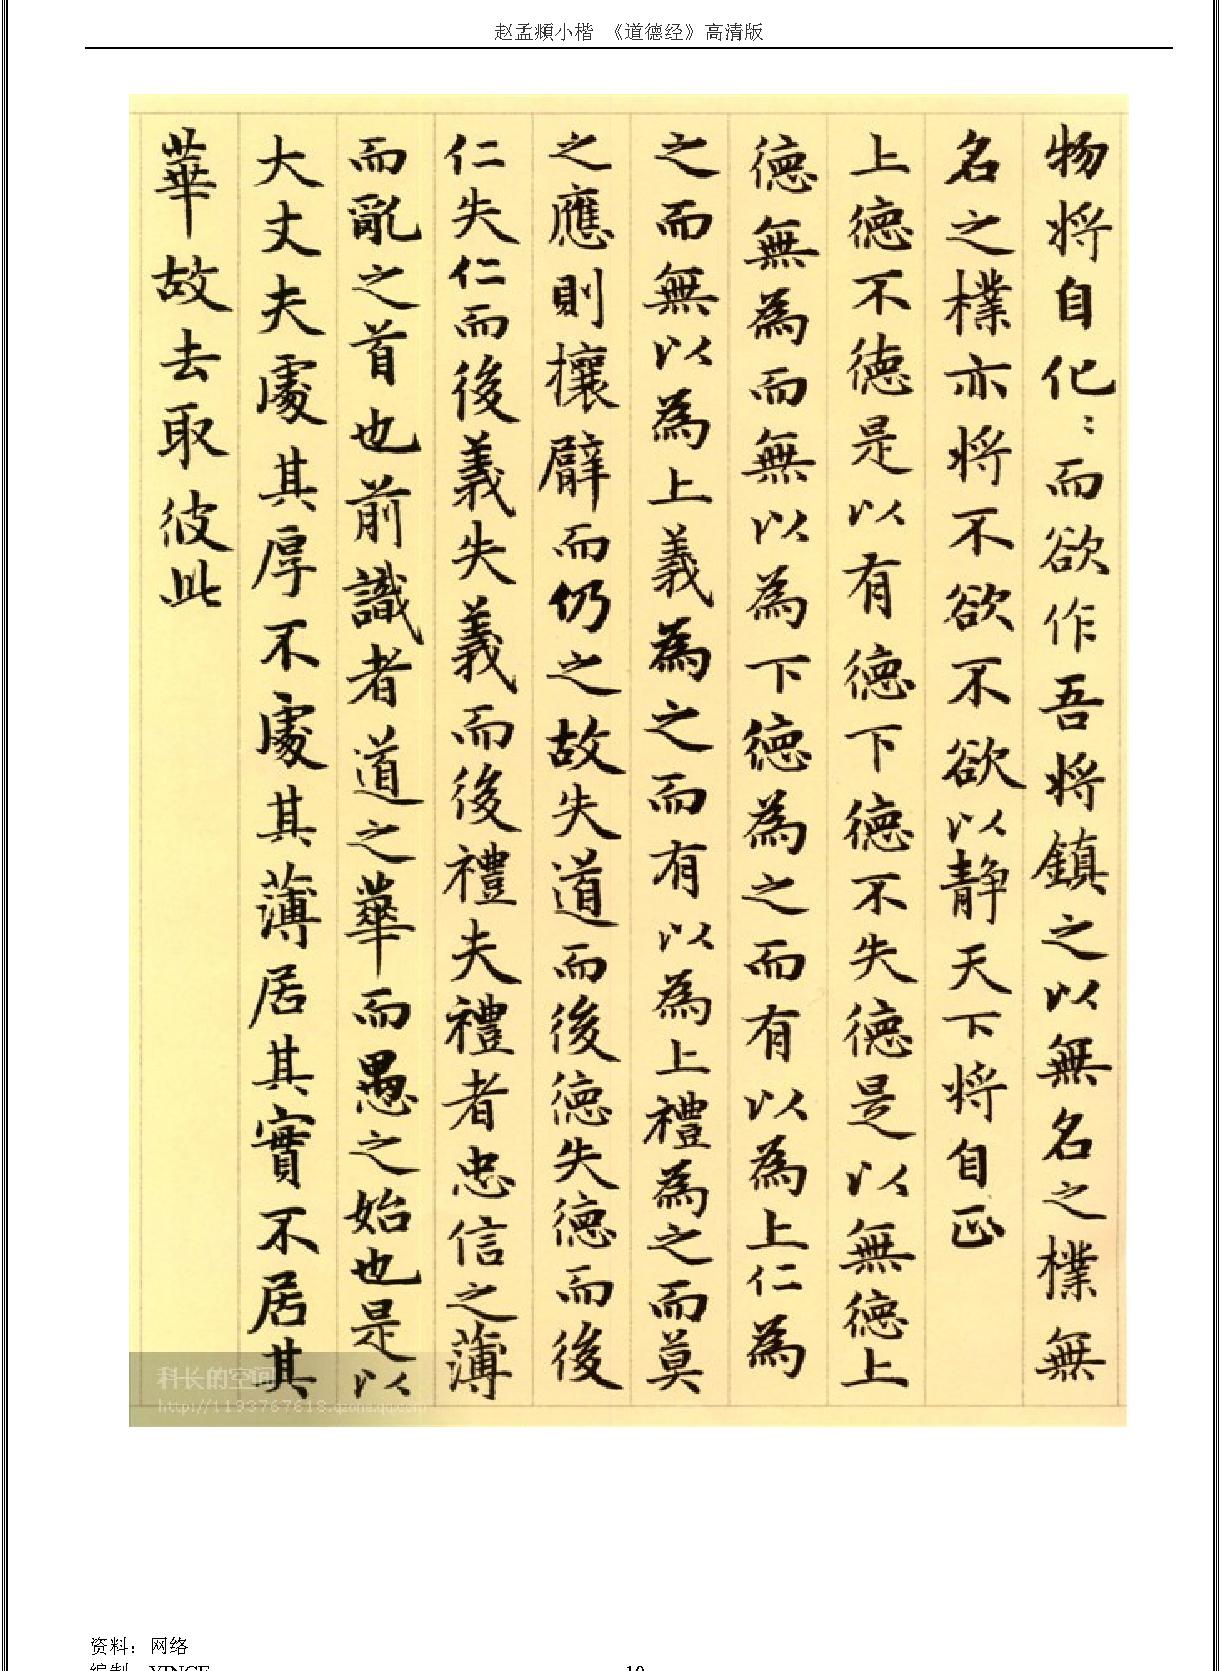 赵孟頫小楷 《道德经》高清版
物将自化：而欲作吾将鎮之以無名之樸無
名之樸亦将不欲不欲以静天下将自正
上德不德是以有德下德不失德是以無德上
德無為而無以為下德為之而有以為上仁為
之而無以為上義為之而有以為上禮為之而莫
之應則攘臂而仍之故失道而後德失德而後
仁失仁而後義失義而後禮夫禮者忠信之薄
而亂之首也前識者道之華而愚之始也是以
大丈夫處其厚不處其薄居其實不居其
華故去取彼此
科长的空间
http://1193767618.qzone.qq.com
资料：网络
编制：YINCE
10